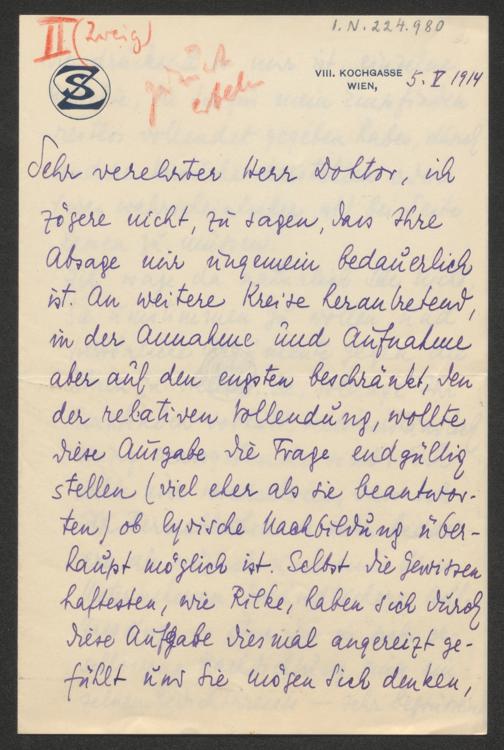 I.N. 224.980
II (Zweig)
SZ
VIII. KOCHGASSE
WIEN, 5. V 1914
Sehr verehrter Herr Doktor, ich
zögere nicht, zu sagen, dass Ihre
Absage mir ungemein bedauerlich
ist. An weitere Kreise herantretend,
in der Annahme und Aufnahme
aber auf den engsten beschränkt, den
der relativen Vollendung, wollte
diese Ausgabe die Frage endgültig
stellen (viel eher als sie beantwor-
ten) ob lyrische Nachbildung über-
haupt möglich ist. Selbst die Gewissen
haftesten, wie Rilke, haben sich durch
diese Aufgabe diesmal angereizt ge-
fühlt und Sie mögen Sich denken,